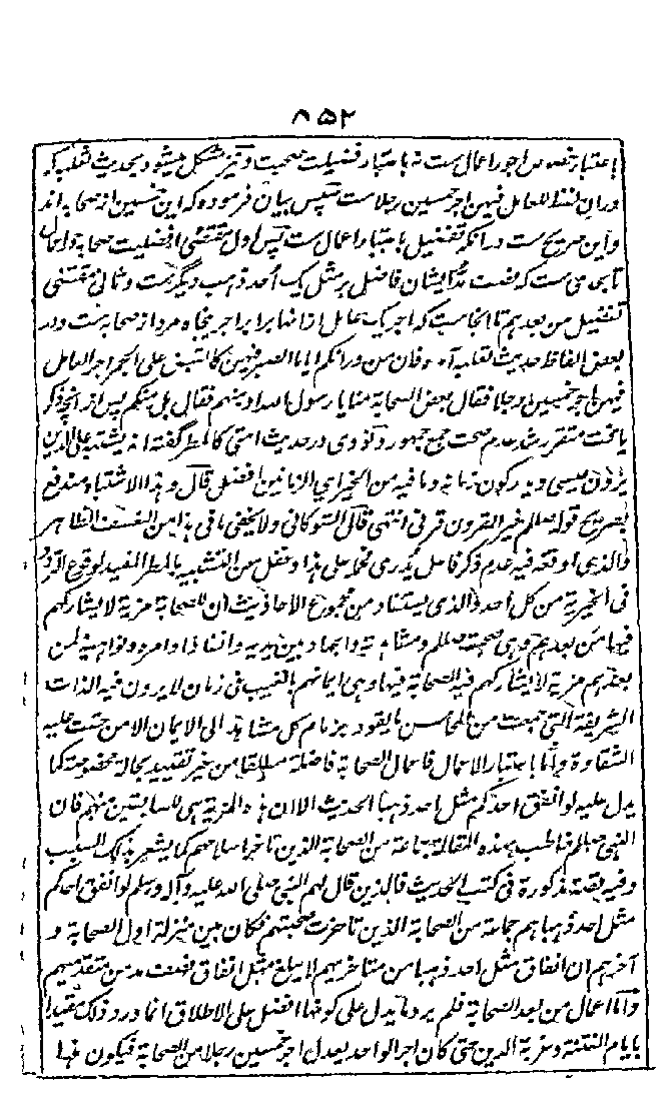 ۸۵۲
باعتبار نصوص اجور اعمال ست نه باعتبار فضیلت صحبت و نیز مشکل میشود بحدیث ثعلبه که
دران لفظ للعامل فیهن اجر خمسین رجلا ست سپس بیان فرموده که این خمسین از صحابه اند
واین صریح ست درانکه تفضیل باعتبار اعمال ست پس اول مقتضی افضلیت صحابه در اعمال
تابحدی ست که نصف مد ایشان فاضل بر مثل یک احد ذهب دیگرست و ثانی مقتضی
تفضیل من بعدهم تا انجاست که اجر یک عامل ازانها برابر اجر پنجاه مرد از صحابه ست و در
بعض الفاظ حدیث ثعلبه آمده فان من ورائکم ایاما الصبر فیهن کالقبض علی الجمر اجر العامل
فیهن اجر خمسین رجلا فقال بعض الصحابة منا یا رسول الله او منهم فقال بل منکم پس از انچه ذکر
یافت متقرر شد عدم صحت جمع جمهور و نووی در حدیث امتی کالمطر گفته انه یشتبه علی الذین
یرون عیسی ویدرکون زمانه وما فیه من الخیر ای الزمانین افضل قال وهذا الاشتباه مندفع
بصریح قوله صلعم خیر القرون قرنی انتهی قال الشوکانی ولا یخفی ما فی هذا من التعسف الظاهر
والذی اوقعه فیه عدم ذکر فاعل یدری فحمله علی هذا وغفل عن التشبیه بالمطر المفید لوقوع التردد
فی الخیریة من کل احد والذی یستفاد من مجموع الاحادیث ان للصحابة مزیة لا یشارکهم
فیها من بعدهم وهی صحبته صلعم ومشاهدته والجهاد بین یدیه وانفاذ اوامره ونواهیه ولمن
بعدهم مزیة لا یشارکهم فیه الصحابة فیها وهی ایمانهم بالغیب فی زمان لا یرون فیه الذات
الشریفة التی جمعت من المحاسن ما یقود بزمام کل مشاهد الی الایمان الا من حقت علیه
الشقاوة واما باعتبار الاعمال فاعمال الصحابة فاضلة مطلقا من غیر تقیید بحالة مخصوصة کما
یدل علیه لو انفق احدکم مثل احد ذهبا الحدیث الا ان هذه المزیة هی للسابقین منهم فان
النبی صلعم خاطب بهذه المقالة جماعة من الصحابة الذین تاخر اسلامهم کما یشعر بذلک السبب
وفیه قصة مذکورة فی کتب الحدیث فالذین قال لهم النبی صلی الله علیه وآله وسلم لو انفق احدکم
مثل احد ذهبا هم جماعة من الصحابة الذین تاخرت صحبتهم فکان بین منزلة اول الصحابة و
آخرهم ان انفاق مثل احد ذهبا من متاخریهم لا یبلغ مثل انفاق نصف مد من متقدمیهم
واما اعمال من بعد الصحابة فلم یرد ما یدل علی کونها افضل علی الاطلاق انما ورد ذلک مقیدا
بایام الفتنة وغربة الدین حتی کان اجر الواحد یعدل اجر خمسین رجلا من الصحابة فیکون هذا